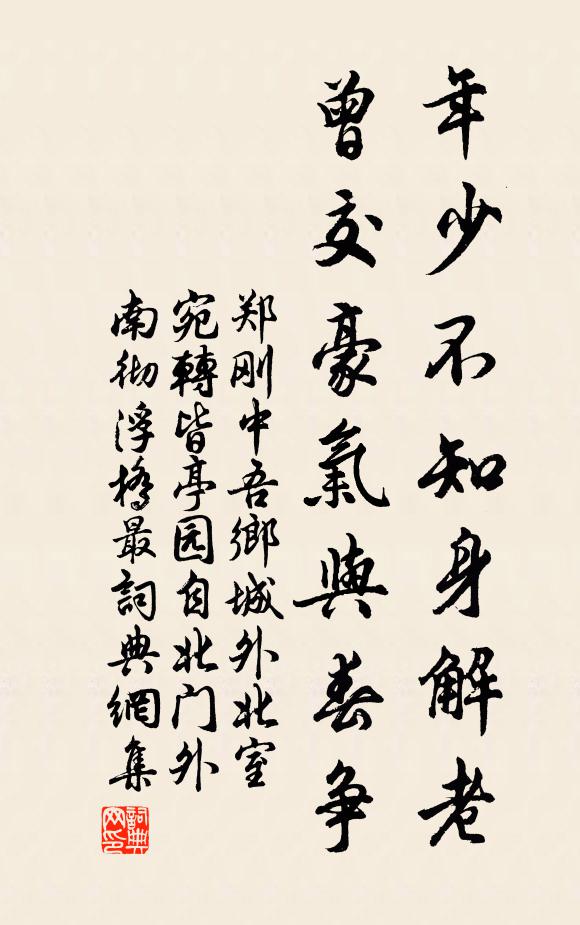 年少不知身解老
曾交豪氣與春争
郑刚中吾鄉城外北室
宛轉皆亭园自北门外
南彻浮橋最詞典網集
詞典
网印